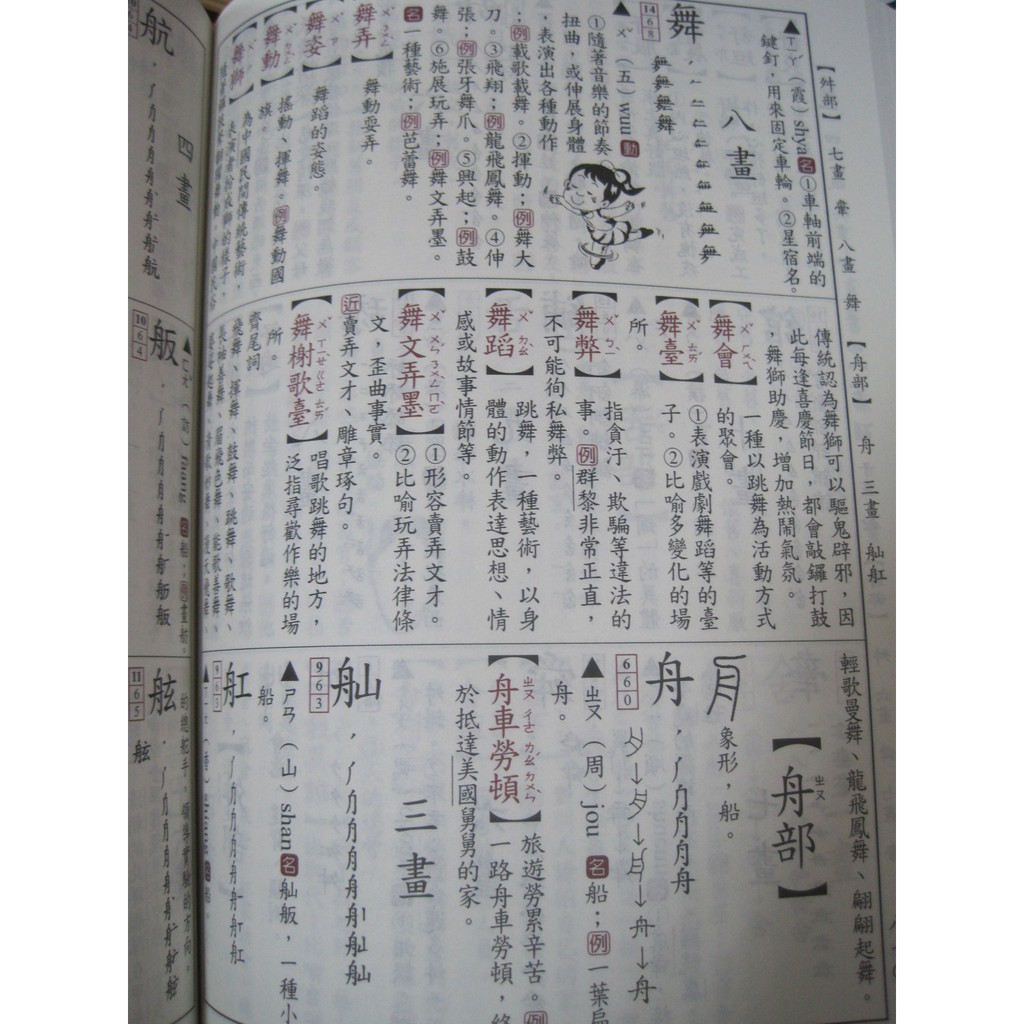 【舛部】 七畫 舝 八畫 舞 【舟部】 舟 三畫 舢舡
▲ㄒㄧㄚˊ（霞）shya 名①車軸前端的
鍵釘，用來固定車輪。②星宿名。
八畫
舞
14
6
8
▲ㄨˇ（五）wuu 動
①隨著音樂的節奏
扭曲，或伸展身體
，表演出各種動作
；例載歌載舞。②揮動；例舞大
刀。③飛翔；例龍飛鳳舞。④伸
張；例張牙舞爪。⑤興起；例鼓
舞。⑥施展玩弄；例舞文弄墨。
名一種藝術；例芭蕾舞。
【舞弄】 舞動耍弄。
【舞姿】 舞蹈的姿態。
【舞動】 搖動、揮舞。例舞動國
旗。
【舞獅】 為中國民間傳統藝術，
表演者扮成獅的樣子，
傳統認為舞獅可以驅鬼辟邪，因
此每逢喜慶節日，都會敲鑼打鼓
，舞獅助慶，增加熱鬧氣氛。
【舞會】 一種以跳舞為活動方式
的聚會。
【舞臺】 ①表演戲劇舞蹈等的臺
子。②比喻多變化的場
所。
【舞弊】 指貪汙、欺騙等違法的
事。例群黎非常正直，
不可能徇私舞弊。
【舞蹈】 跳舞，一種藝術，以身
體的動作表達思想、情
感或故事情節等。
【舞文弄墨】 ①形容賣弄文才。
②比喻玩弄法律條
文，歪曲事實。
近賣弄文才、雕章琢句。
【舞榭歌臺】 唱歌跳舞的地方，
泛指尋歡作樂的場
所。
齊尾詞
飛舞、揮舞、鼓舞、跳舞、歌舞、
長袖善舞、眉飛色舞、能歌善舞、
輕歌曼舞、龍飛鳳舞、翩翩起舞。
【舟部】
ㄓㄡ
象形，船。
舟
6
6
0
▲ㄓㄡ（周）jou 名船；例一葉扁
舟。
【舟車勞頓】 旅遊勞累辛苦。例
一路舟車勞頓，終
於抵達美國舅舅的家。
三畫
舢
9
6
3
▲ㄕㄢ（山）shan 名舢舨，一種小
船。
舡
9
6
3
四畫
航
舨
10
6
4
舷
11
6
5